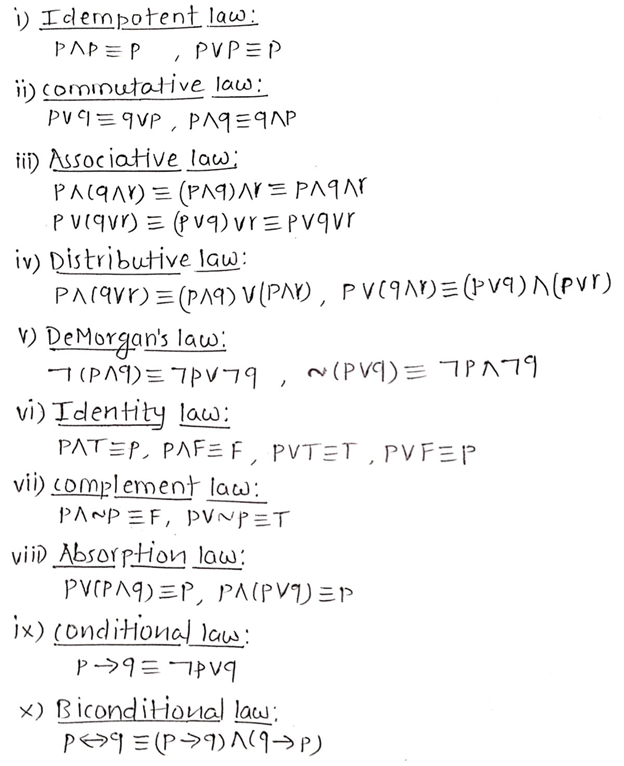 i) Idempotent law:
P∧P≡P , P∨P≡P
ii) commutative law:
P∨q≡q∨P , P∧q≡q∧P
iii) Associative law:
P∧(q∧r)≡(P∧q)∧r≡P∧q∧r
P∨(q∨r)≡(P∨q)∨r≡P∨q∨r
iv) Distributive law:
P∧(q∨r)≡(P∧q)∨(P∧r), P∨(q∧r)≡(P∨q)∧(P∨r)
v) DeMorgan's law:
¬(P∧q)≡¬P∨¬q , ~(P∨q)≡ ¬P∧¬q
vi) Identity law:
P∧T≡P, P∧F≡F, P∨T≡T, P∨F≡P
vii) complement law:
P∧~P≡F, P∨~P≡T
viii) Absorption law:
P∨(P∧q)≡P, P∧(P∨q)≡P
ix) conditional law:
P→q≡¬P∨q
x) Biconditional law:
P↔q≡(P→q)∧(q→P)